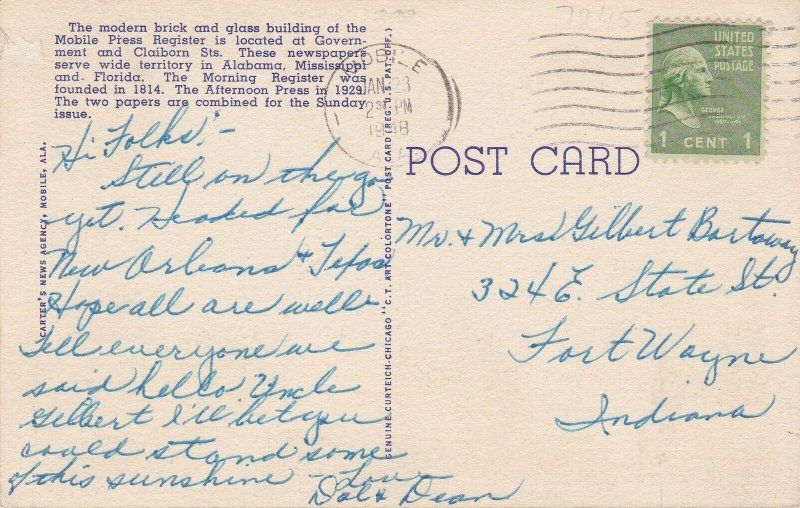 The modern brick and glass building of the
Mobile Press Register is located at Govern-
ment and Claiborn Sts. These newspapers
serve wide territory in Alabama, Mississippi
and Florida. The Morning Register was
founded in 1814. The Afternoon Press in 1929.
The two papers are combined for the Sunday
issue.
Hi Folks:-
Still on the go
yet. Headed for
New Orleans & Texas
Hope all are well-
Tell everyone we
said hello. Uncle
Gilbert I'll bet you
could stand some
of this sunshine - Love
Dot & Dean
CARTER'S NEWS AGENCY, MOBILE, ALA.
GENUINE CURTEICH-CHICAGO "C.T. ART-COLORTONE" POST CARD (REG. U.S. PAT. OFF.)
MOBILE
JAN 23
2 30 PM
1948
ALA
POST CARD
UNITED
STATES
POSTAGE
GEORGE
WASHINGTON
1 CENT 1
Mr. & Mrs. Gilbert Bartoway
324 E. State St.
Fort Wayne
Indiana